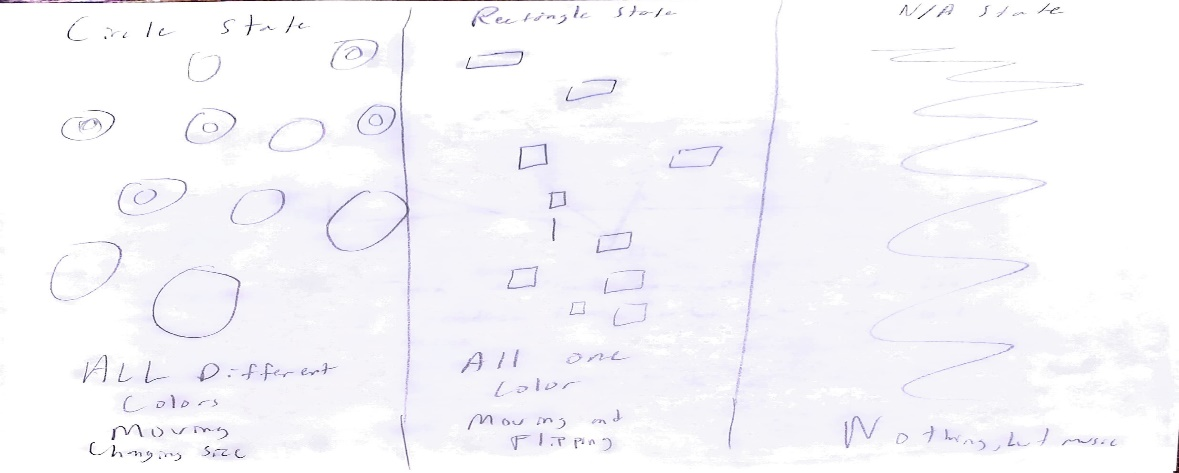 Circle State
ALL Different
Colors
Moving
Changing Size
Rectangle State
All one
Color
Moving and
Flipping
N/A State
Nothing, but music